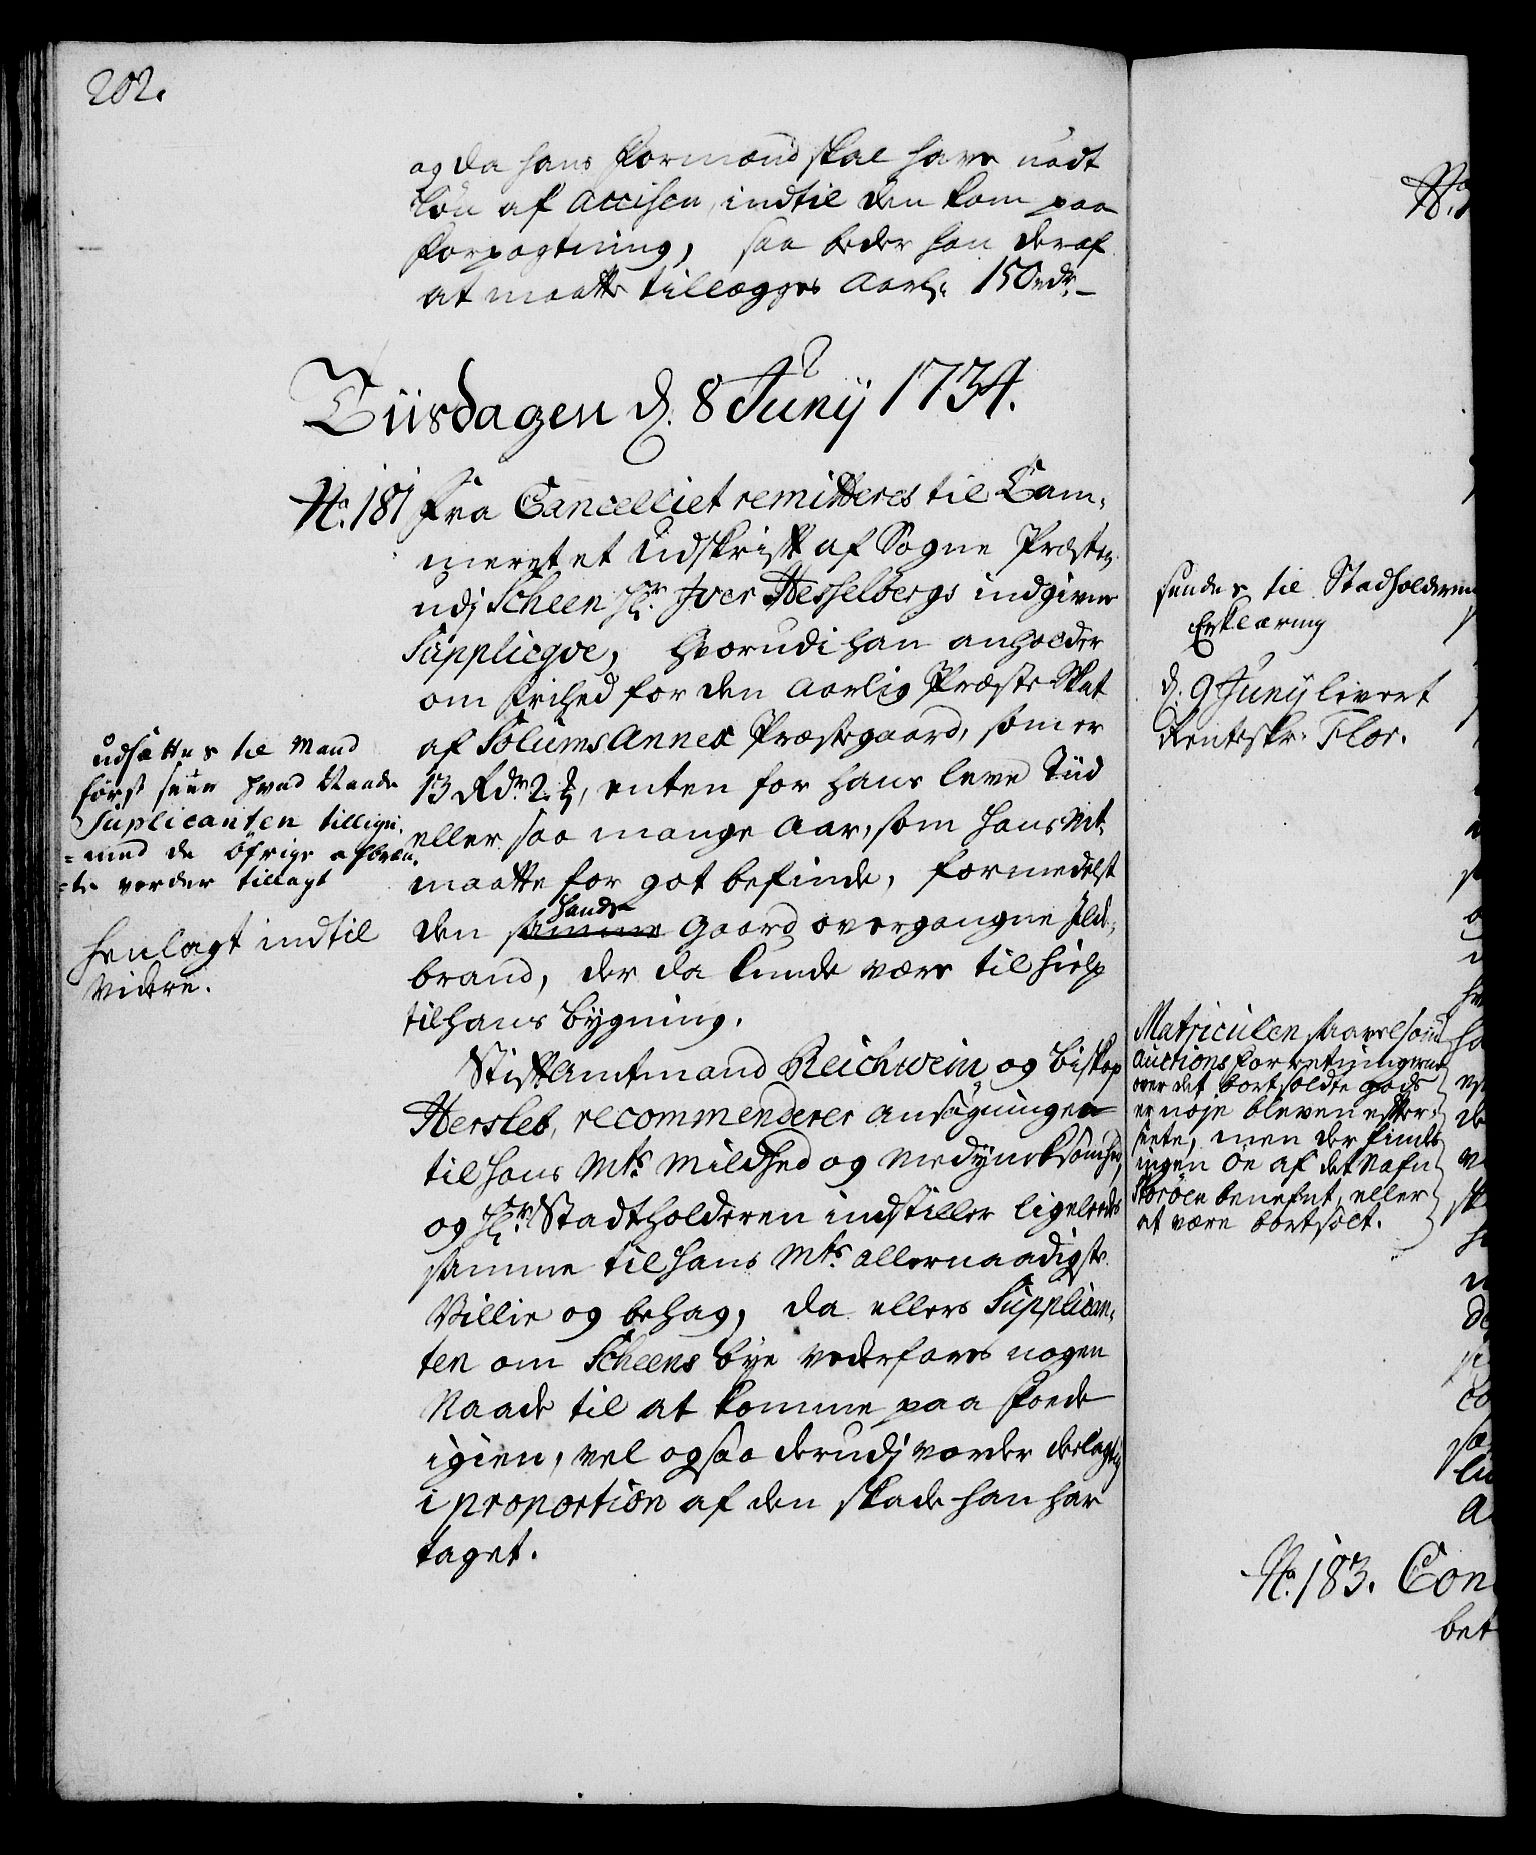 202.
og da hans Formænd skal have nødt
Løn af Accisen, indtil den kom paa
Forpagtning, saa beder han deraf
at maatte tillægges Aarl: 150 rdr.
Tiisdagen d. 8 Junij 1734.
No. 181 Fra Cancelliet remitteres til Cam-
meret et Udskrift af Sogne Præsten
udj Scheen Hr. Iver Hesselbergs indgivne
Supplicqve, hvorudi han anholder
om Frihed for den Aarlig Præste Skat
af Solums Annex Præstegaard, som er
13 Rdr. 2 ß, enten for hans leve Tiid
eller saa mange Aar, som hans Mt.
maatte for got befinde, formedelst
den samme hands Gaard overgangne Ilde-
brand, der da kunde være til hielp
til hans bygning.
Stiftamtmand Reichwein og Biskop
Hersleb, recommenderer ansøgningen
til hans Mts. Mildhed og Medynksomhed,
og Hr. Stadtholderen indstiller ligeleedes
samme til hans Mts. allernaadigste
Villie og behag, da ellers Supplican-
ten om Scheens bye vederfares nogen
Naade til at komme paa Foede
igien, vel ogsaa derudj vorder deelagtig
i proportion af den skade han har
taget.
udsættes til Mand
først seer hvad Naade
Suplicanten tillige
med de øfrige afbræn-
te vorder tillagt
henlagt indtil
Videre.
No.
sendes til Stadholderens
Erklæring
d. 9 Junij livert
Renteskr. Flor.
Matriculen saavelsom
Auctions Forretningerne
over det bortsoldte gods
er nøje bleven efter-
seete, men der findes
ingen Øe af det Nafn
Skoröen benefnt, eller
at være bortsolt.
No. 183. Con
bet